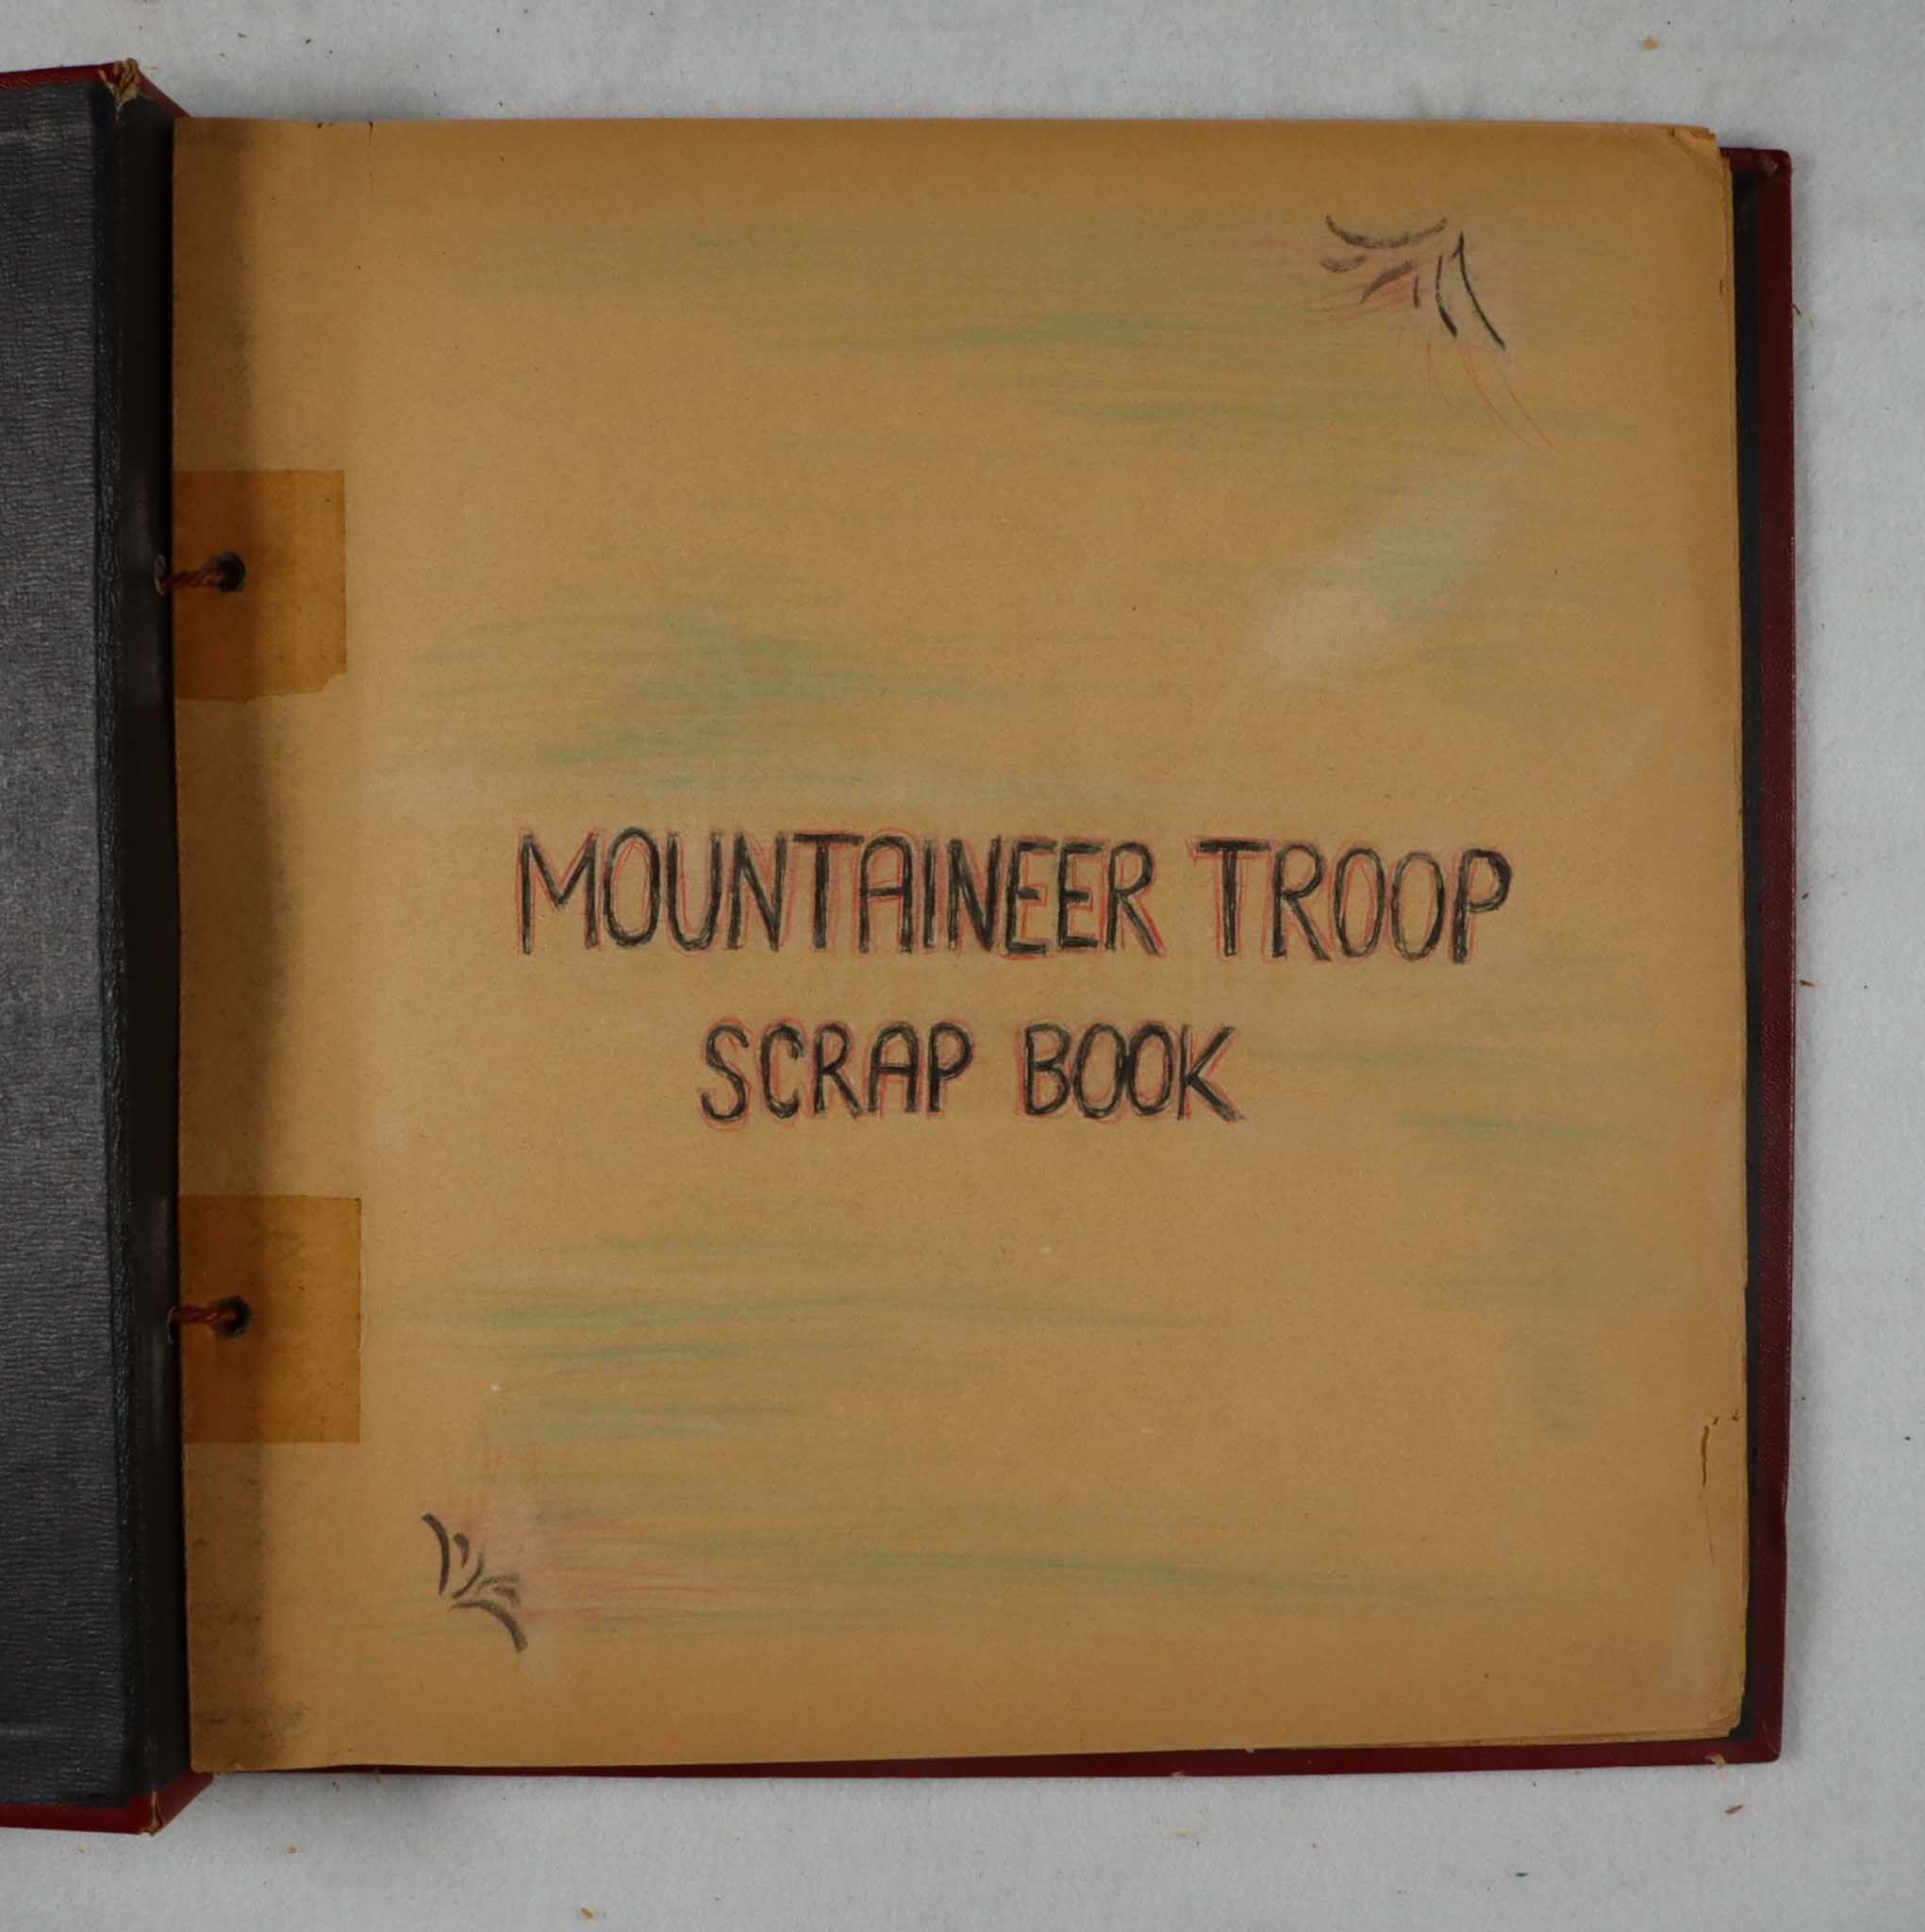 MOUNTAINEER TROOP
SCRAP BOOK